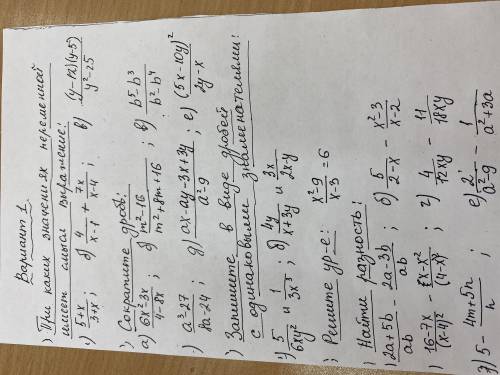 Вариант 1
) При каких значениях переменной
имеет смысл выражение:
) (5+x)/(3+x); б) 4/(x-1) + 7x/(x-4); в) (y-12)(y-5)/(y²-25)
), Сократите дробь:
а) (6x²-3x)/(4-8x); б) (m²-16)/(m²+8m+16); в) (b⁵-b³)/(b²-b⁴)
) (a³-27)/(8a-24); д) (ax-ay-3x+3y)/(a²-9); е) (5x-10y)²/(2y-x)
) Запишите в виде дробей
с одинаковыми знаменателями:
) 5/(6xy²) и 1/(3x³); б) 4y/(x+3y) и 3x/(2x-y)
; Решите ур-е: (x²-9)/(x-3) = 6
; Найти разность:
) (2a+5b)/(ab) - (2a-3b)/(ab); б) 5/(2-x) - (x²-3)/(x-2)
) (16-7x)/(x-4)² - (x-x²)/(4-x)²; г) 4/(72xy) - 11/(18xy)
7) 5 - (4m-5n)/n; е) 2/(a²-9) - 1/(a²+3a)